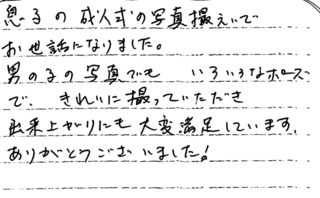 息子の成人式の写真撮影で
お世話になりました。
男の子の写真でも いろいろなポーズ
で、きれいに撮っていただき
出来上がりにも大変満足しています。
ありがとうございました!